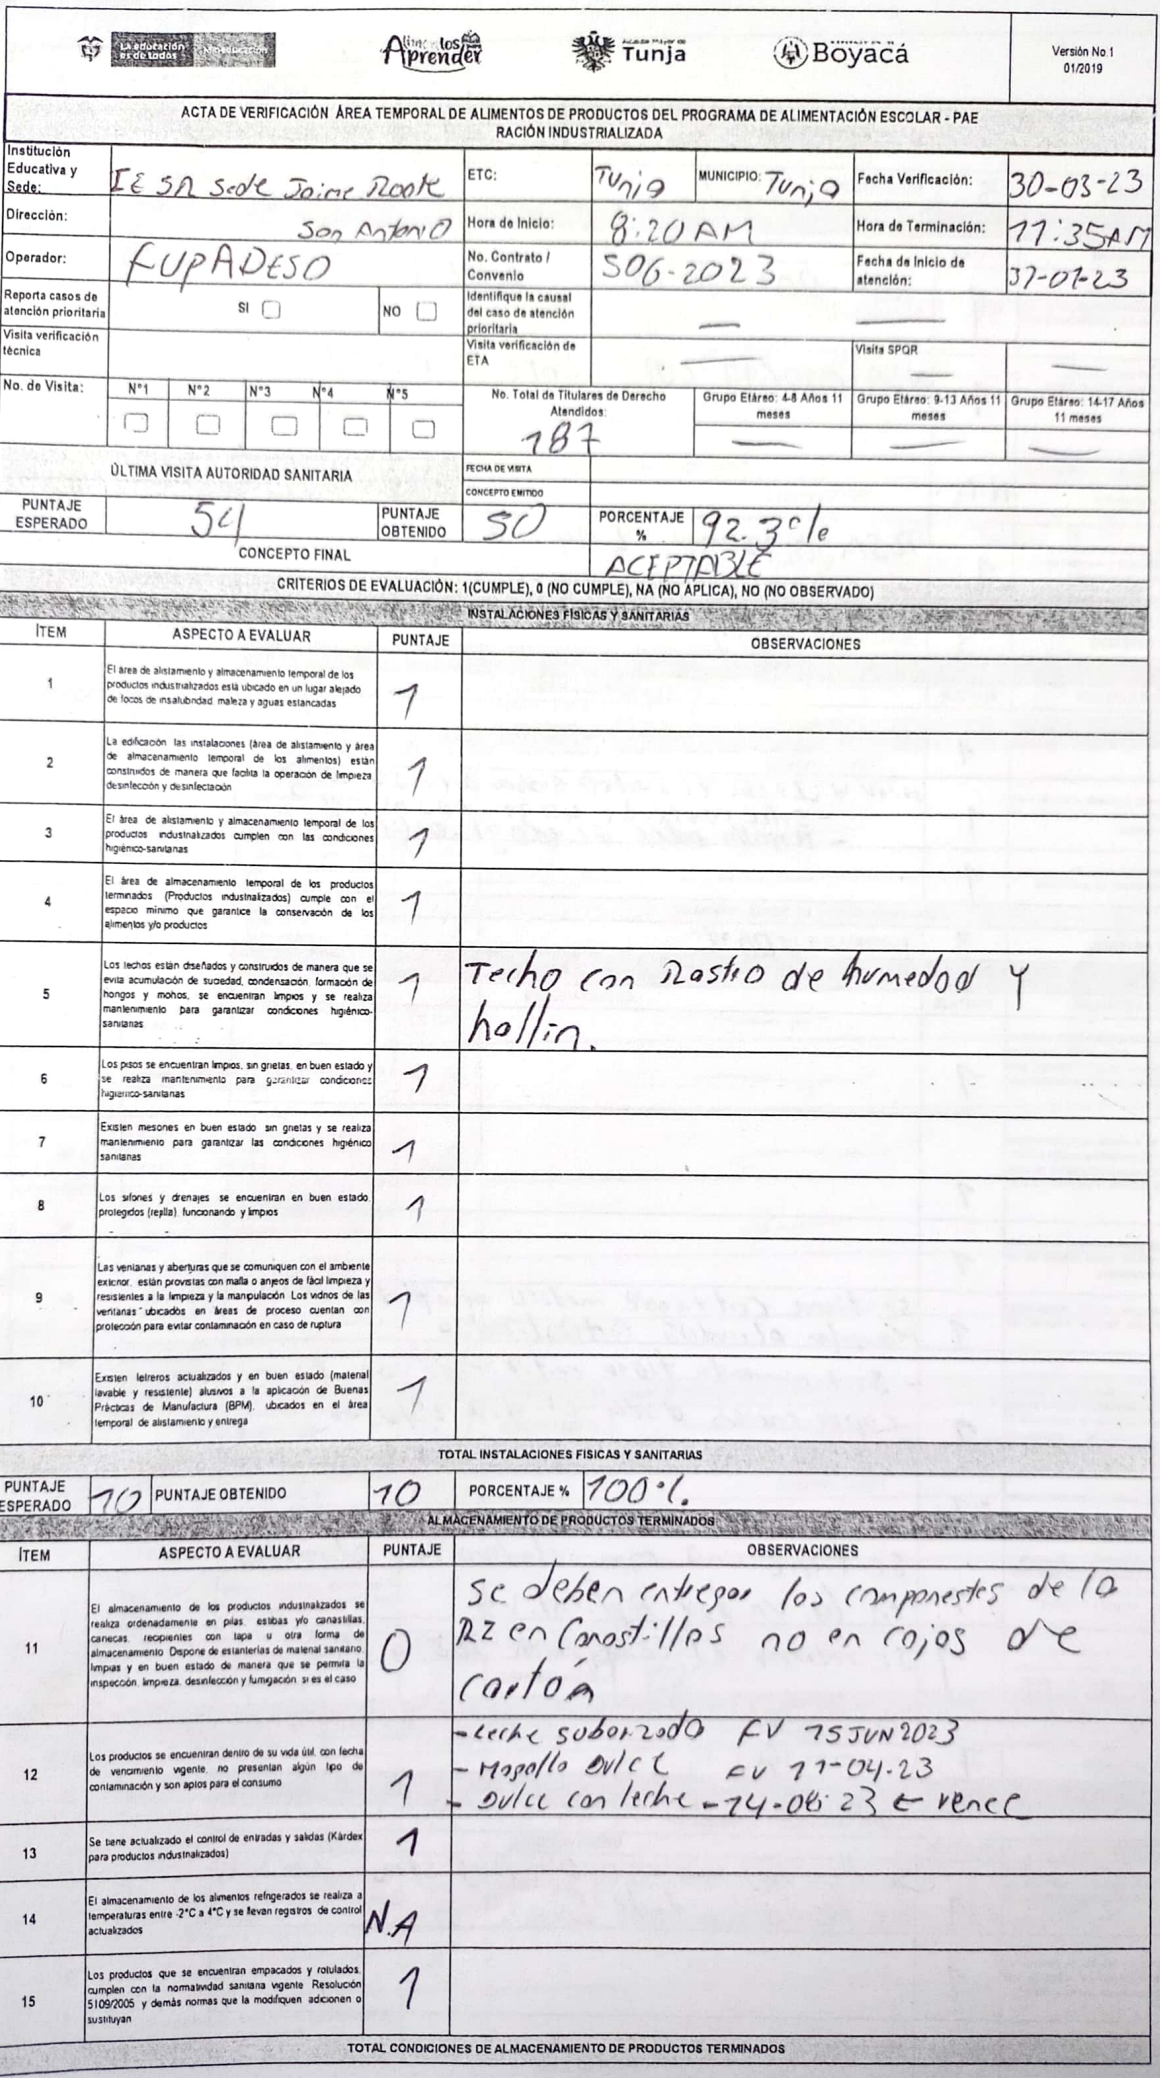 La educación es de todos
Mineducación
Alimentos Aprender
Tunja
Boyacá
Versión No.1
01/2019
ACTA DE VERIFICACIÓN ÁREA TEMPORAL DE ALIMENTOS DE PRODUCTOS DEL PROGRAMA DE ALIMENTACIÓN ESCOLAR - PAE
RACIÓN INDUSTRIALIZADA
Institución Educativa y Sede: IE SR Sede Jaime Rook
ETC: Tunja
MUNICIPIO: Tunja
Fecha Verificación: 30-03-23
Dirección: San Antonio
Hora de Inicio: 8:20 AM
Hora de Terminación: 11:35 AM
Operador: FUPADESO
No. Contrato / Convenio 506-2023
Fecha de Inicio de atención: 31-01-23
Reporta casos de atención prioritaria SI NO
Identifique la causal del caso de atención prioritaria
Visita verificación técnica
Visita verificación de ETA
Visita SPQR
No. de Visita: N°1 N°2 N°3 N°4 N°5
No. Total de Titulares de Derecho Atendidos: 187
Grupo Etáreo: 4-8 Años 11 meses
Grupo Etáreo: 9-13 Años 11 meses
Grupo Etáreo: 14-17 Años 11 meses
ÚLTIMA VISITA AUTORIDAD SANITARIA
FECHA DE VISITA
CONCEPTO EMITIDO
PUNTAJE ESPERADO 54
PUNTAJE OBTENIDO 50
PORCENTAJE % 92.3 %
CONCEPTO FINAL ACEPTABLE
CRITERIOS DE EVALUACIÓN: 1(CUMPLE), 0 (NO CUMPLE), NA (NO APLICA), NO (NO OBSERVADO)
INSTALACIONES FÍSICAS Y SANITARIAS
ÍTEM ASPECTO A EVALUAR PUNTAJE OBSERVACIONES
1 El área de alistamiento y almacenamiento temporal de los productos industrializados está ubicado en un lugar alejado de focos de insalubridad maleza y aguas estancadas 1
2 La edificación las instalaciones (área de alistamiento y área de almacenamiento temporal de los alimentos) están construidos de manera que facilita la operación de limpieza desinfección y desinfectación 1
3 El área de alistamiento y almacenamiento temporal de los productos industrializados cumplen con las condiciones higiénico-sanitarias 1
4 El área de almacenamiento temporal de los productos terminados (Productos industrializados) cumple con el espacio mínimo que garantice la conservación de los alimentos y/o productos 1
5 Los techos están diseñados y construidos de manera que se evita acumulación de suciedad, condensación, formación de hongos y mohos, se encuentran limpios y se realiza mantenimiento para garantizar condiciones higiénico-sanitarias 1
Techo con Rastro de humedad y
hollin.
6 Los pisos se encuentran limpios, sin grietas, en buen estado y se realiza mantenimiento para garantizar condiciones higiénico-sanitarias 1
7 Existen mesones en buen estado sin grietas y se realiza mantenimiento para garantizar las condiciones higiénico sanitarias 1
8 Los sifones y drenajes se encuentran en buen estado, protegidos (rejilla), funcionando y limpios 1
9 Las ventanas y aberturas que se comuniquen con el ambiente exterior, están provistas con malla o anjeos de fácil limpieza y resistentes a la limpieza y la manipulación Los vidrios de las ventanas ubicados en áreas de proceso cuentan con protección para evitar contaminación en caso de ruptura 1
10 Existen letreros actualizados y en buen estado (material lavable y resistente) alusivos a la aplicación de Buenas Prácticas de Manufactura (BPM), ubicados en el área temporal de alistamiento y entrega 1
TOTAL INSTALACIONES FISICAS Y SANITARIAS
PUNTAJE ESPERADO 10 PUNTAJE OBTENIDO 10 PORCENTAJE % 100%.
ALMACENAMIENTO DE PRODUCTOS TERMINADOS
ÍTEM ASPECTO A EVALUAR PUNTAJE OBSERVACIONES
11 El almacenamiento de los productos industrializados se realiza ordenadamente en pilas, estibas y/o canastillas, canecas, recipientes con tapa u otra forma de almacenamiento Dispone de estanterías de material sanitario, limpias y en buen estado de manera que se permita la inspección, limpieza, desinfección y fumigación si es el caso 0
se deben entregar los componestes de la
RI en Canastillas no en cajas de
cartón
12 Los productos se encuentran dentro de su vida útil, con fecha de vencimiento vigente, no presentan algún tipo de contaminación y son aptos para el consumo 1
- Leche saborizada FV 15 JUN 2023
- Mogolla Dulce FV 11-04-23
- Dulce con leche - 14-08-23 ← vence
13 Se tiene actualizado el control de entradas y salidas (Kárdex para productos industrializados) 1
14 El almacenamiento de los alimentos refrigerados se realiza a temperaturas entre -2°C a 4°C y se llevan registros de control actualizados N.A
15 Los productos que se encuentran empacados y rotulados, cumplen con la normatividad sanitaria vigente Resolución 5109/2005 y demás normas que la modifiquen adicionen o sustituyan 1
TOTAL CONDICIONES DE ALMACENAMIENTO DE PRODUCTOS TERMINADOS